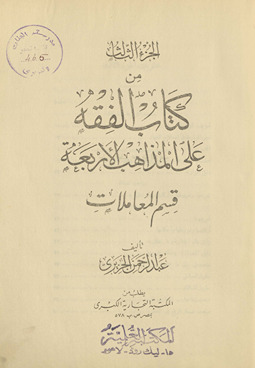 الجزء الثالث
من
كتاب الفقه
على المذاهب الأربعة
قسم المعاملات
تأليف
عبد الرحمن الجزيري
يطلب من
المكتبة التجارية الكبرى
بمصر ص ب ٥٧٨